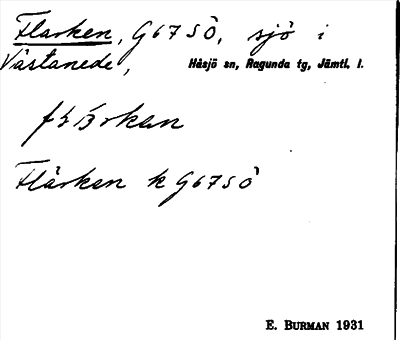 Flarken, G67SÖ, sjö i
Västanede,
Håsjö sn, Ragunda tg, Jämtl. l.
Flärken k G67SÖ
E. BURMAN 1931